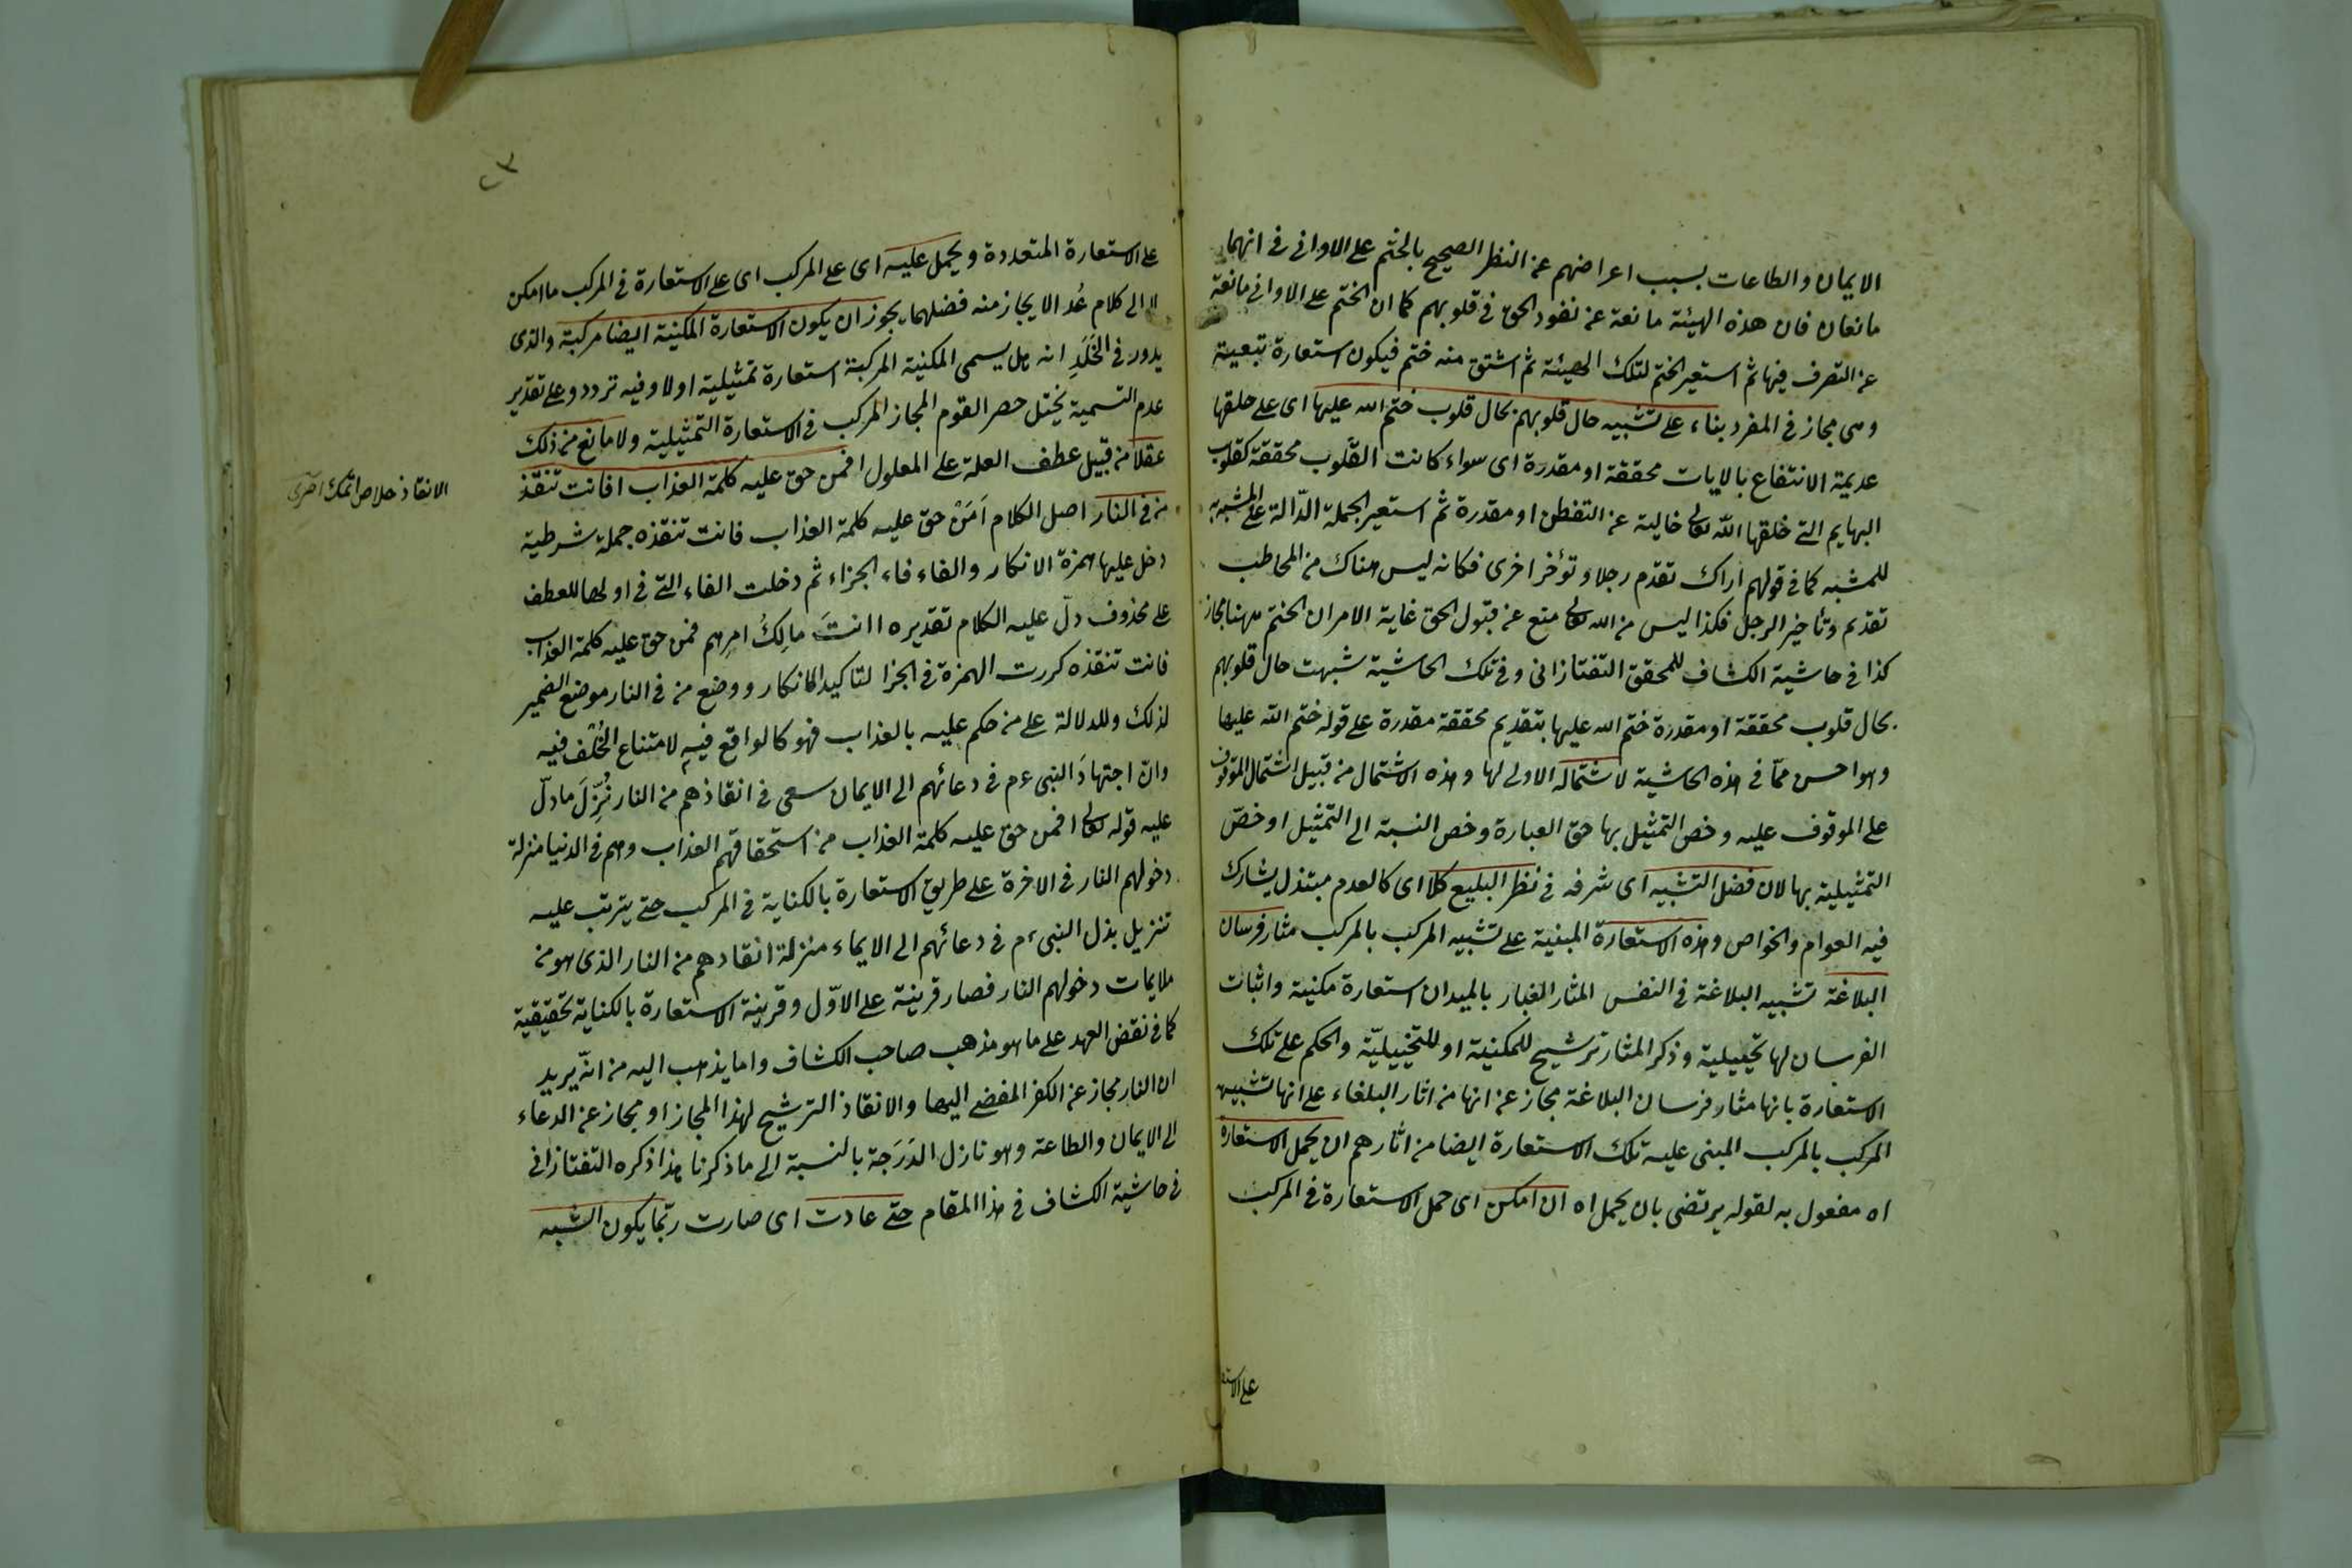 الايمان والطاعات بسبب اعراضهم عن النظر الصحيح بالختم على الاوانى فى انهما
مانعان فان هذه الهيئة مانعة عن نفوذ الحق فى قلوبهم كما ان الختم على الاوانى مانعة
عن التصرف فيها ثم استعير الختم لتلك الهيئة ثم اشتق منه ختم فيكون استعارة تبعية
وهى مجاز فى المفرد بناء على تشبيه حال قلوبهم بحال قلوب ختم الله عليها اى على خلقها
عديمة الانتفاع بالايات محققة او مقدرة اى سواء كانت القلوب محققة كقلوب
البهايم التى خلقها الله تعالى خالية عن التفطن او مقدرة ثم استعير الجملة الدالة على المشبه به
للمشبه كما فى قولهم اراك تقدم رجلا وتؤخر اخرى فكما انه ليس هناك من المخاطب
تقديم وتأخير الرجل فكذا ليس من الله تعالى منع عن قبول الحق غاية الامر ان الختم ههنا مجاز
كذا فى حاشية الكشاف للمحقق التفتازانى وفى تلك الحاشية شبهت حال قلوبهم
بحال قلوب محققة او مقدرة ختم الله عليها بتقديم محققة مقدرة على قوله ختم الله عليها
وهو احسن مما فى هذه الحاشية لاشتماله الاولى لها وهذه الاشتمال من قبيل اشتمال الموقوف
على الموقوف عليه وخص التمثيل بها حق العبارة وخص النسبة الى التمثيل او خصّ
التمثيلية بها لان فضل التشبيه اى شرفه فى نظر البليغ كلا اى كالعدم مبتذل يشارك
فيه العوام والخواص وهذه الاستعارة المبنية على تشبيه المركب بالمركب مثار فرسان
البلاغة تشبيه البلاغة فى النفس المثار الغبار بالميدان استعارة مكنية واثبات
الفرسان لها تخييلية وذكر المثار ترشيح للمكنية او للتخييليّة والحكم على تلك
الاستعارة بانها مثار فرسان البلاغة مجاز عن انها من اثار البلغاء على انها تشبيه
المركب بالمركب المبنى عليه تلك الاستعارة ايضا من اثارهم ان يحمل الاستعارة
اه مفعول به لقوله يرتضى بان يحمل اه ان امكن اى حمل الاستعارة فى المركب
على الاستعا
٢٣
على الاستعارة المتعددة ويحمل عليه اى على المركب اى على الاستعارة فى المركب ما امكن
لا الى كلام عُد الايجاز منه فضلهما يجوز ان يكون الاستعارة المكنية ايضا مركبة والذى
يدور فى الخَلَدِ انه هل يسمى المكنية المركبة استعارة تمثيلية اولا وفيه تردد وعلى تقدير
عدم التسمية يختل حصر القوم المجاز المركب فى الاستعارة التمثيلية ولا مانع من ذلك
عقلا من قبيل عطف العلة على المعلول افمن حق عليه كلمة العذاب افانت تنقذ
من فى النار اصل الكلام اَمَنْ حق عليه كلمة العذاب فانت تنقذه جملة شرطية
دخل عليها همزة الانكار والفاء فاء الجزاء ثم دخلت الفاء التى فى اولها للعطف
على محذوف دلّ عليه الكلام تقديره اانتَ مالِكُ امرِهم فمن حق عليه كلمة العذاب
فانت تنقذه كررت الهمزة فى الجزا لتاكيد الانكار ووضع من فى النار موضع الضمير
لذلك وللدلالة على من حكم عليه بالعذاب فهو كالواقع فيه لامتناع الخُلْف فيه
وانّ اجتهادَ النبى ءم فى دعائهم الى الايمان سعى فى انقاذهم من النار نُزِّلَ ما دلّ
عليه قوله تعالى افمن حق عليه كلمة العذاب من استحقاقهم العذاب وهم فى الدنيا منزلة
دخولهم النار فى الاخرة على طريق الاستعارة بالكناية فى المركب حتى يترتب عليه
تنزيل بذل النبى ءم فى دعائهم الى الايماء منزلة انقادهم من النار الذى هو من
ملايمات دخولهم النار فصار قرينة على الاوّل وقرينة الاستعارة بالكناية تحقيقية
كما فى نقض العهد على ما هو مذهب صاحب الكشاف واما يذهب اليه من انّه يريد
ان النار مجاز عن الكفر المفضى اليها والانقاذ الترشيح لهذا المجاز او مجاز عن الدعاء
الى الايمان والطاعة وهو نازل الدَرَجة بالنسبة الى ما ذكرنا هذا ذكره التفتازانى
فى حاشية الكشاف فى هذا المقام حتى عادت اى صارت ربّما يكون الشبه
الانقاذ خلاص اتمك